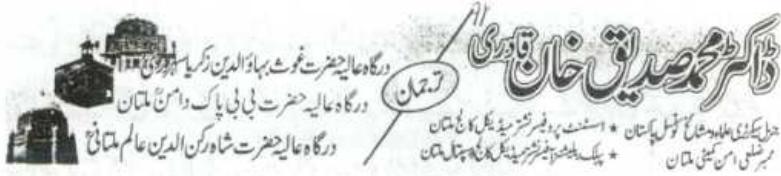 ڈاکٹر محمد صدیق خان قادری
جنرل سیکرٹری علماء و مشائخ کونسل پاکستان ★ اسسٹنٹ پروفیسر نشتر میڈیکل کالج ملتان
ممبر ضلعی امن کمیٹی ملتان ★ پبلک ریلیشنز آفیسر نشتر میڈیکل کالج و ہسپتال ملتان
ترجمان
درگاہ عالیہ حضرت غوث بہاؤ الدین زکریا سہروردی
درگاہ عالیہ حضرت بی بی پاک دامنؒ ملتان
درگاہ عالیہ حضرت شاہ رکن الدین عالم ملتانیؒ